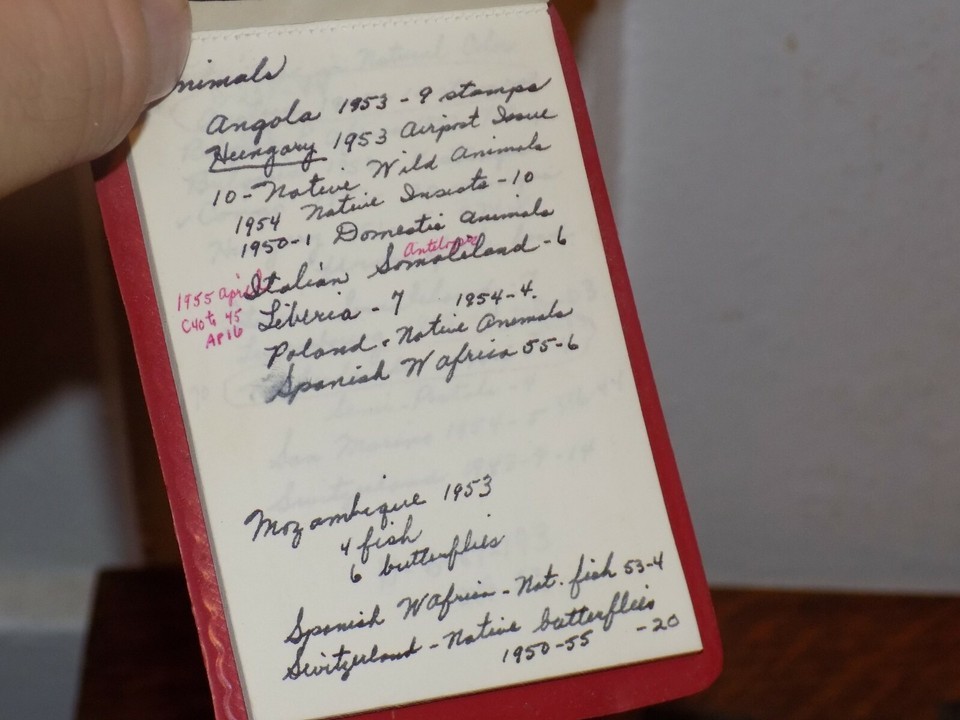 nimals
Angola 1953 - 9 stamps
Hungary 1953 Airpost Issue
10 - Native Wild Animals
1954 Native Insects - 10
1950-1 Domestic Animals
Antelope
Italian Somaliland - 6
1955 April
C40 to 45
AP16
Liberia - 7
1954-4.
Poland - Native Animals
Spanish W Africa 55-6
Mozambique 1953
4 fish
6 butterflies
Spanish W Africa - Nat. fish 53-4
Switzerland - Native butterflies
1950-55 - 20